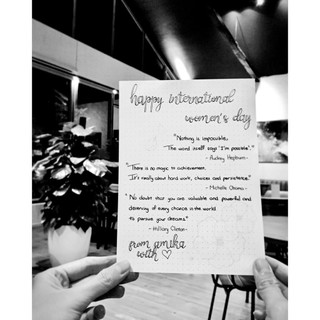 happy international
women's day
"Nothing is impossible,
The word itself says 'I'm possible'."
- Audrey Hepburn-
"There is no magic to achievement.
It's really about hard work, choices and persistence."
- Michelle Obama -
"No doubt that you are valuable and powerful and
deserving of every chance in the world
to pursue your dreams."
- Hillary Clinton-
from amika
with ♡